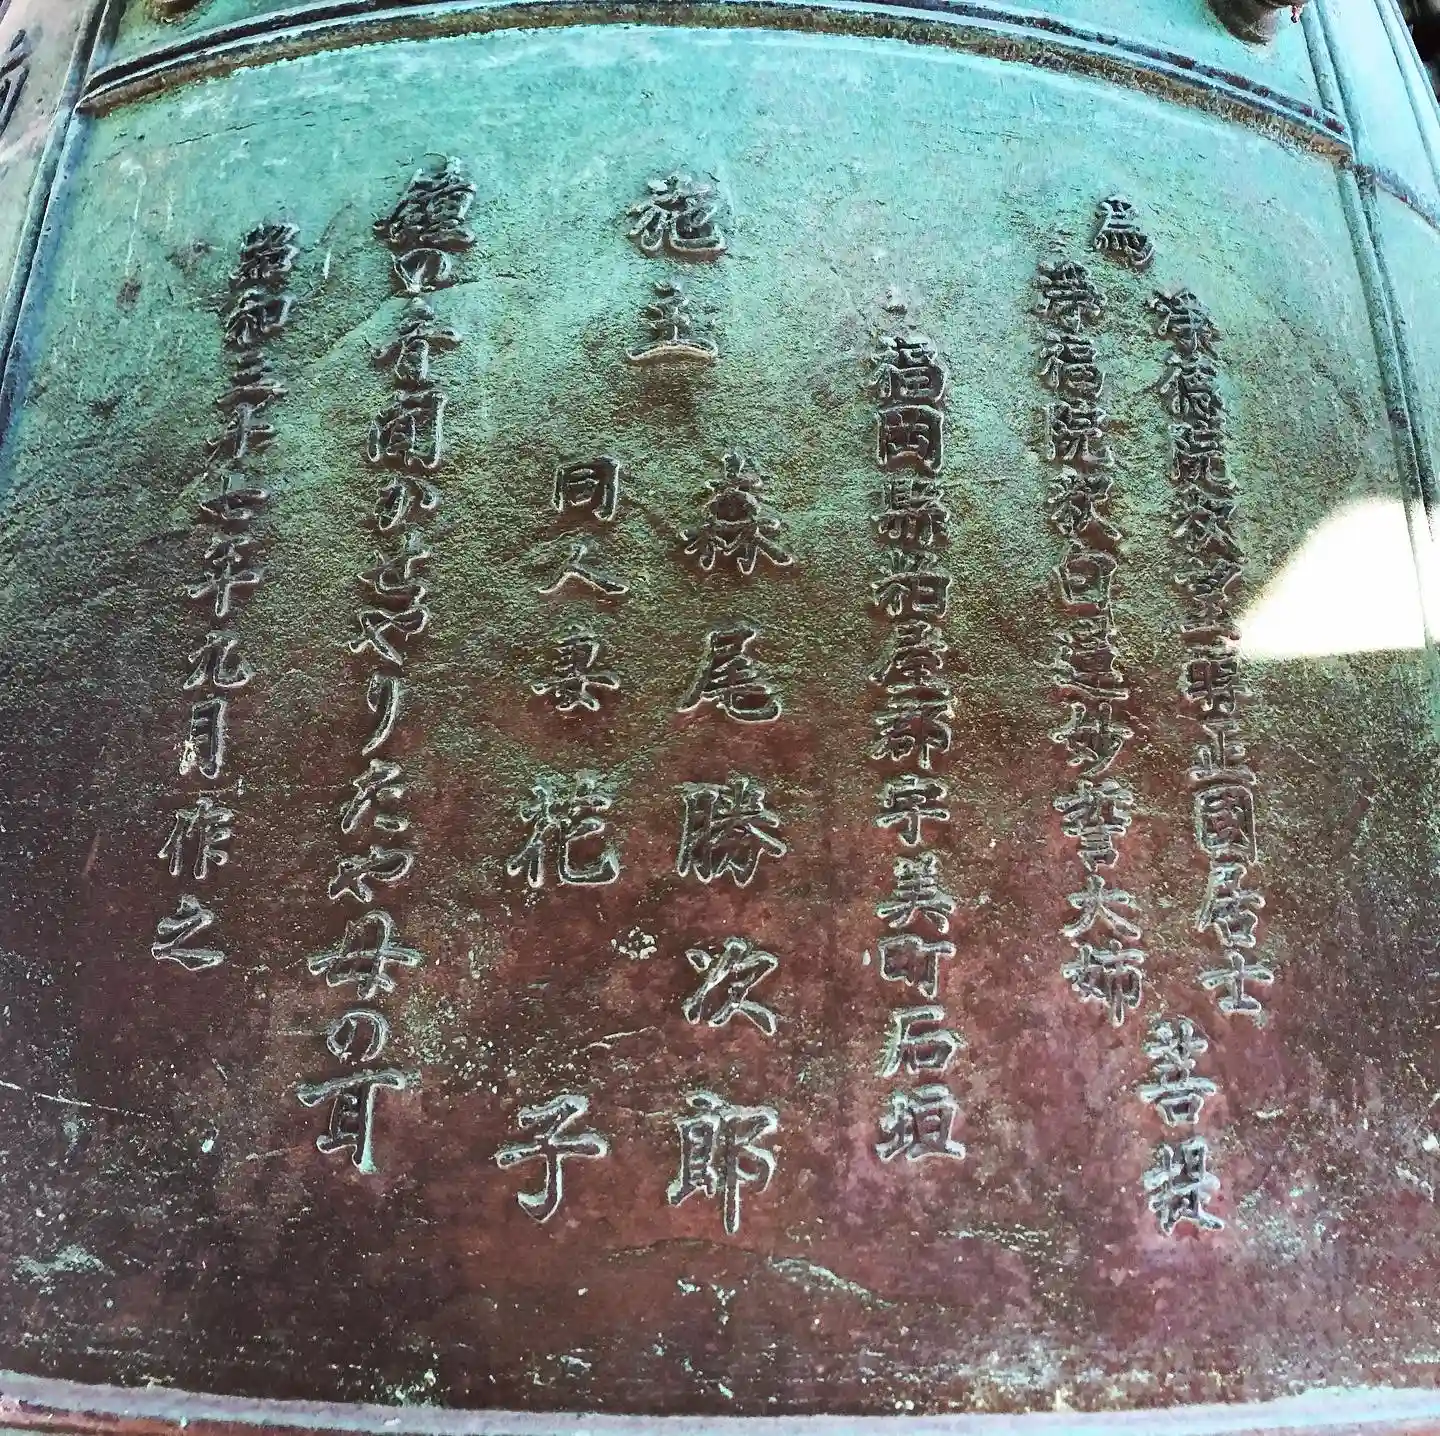 為
院釈一時正國居士
福院釈道妙誓大姉
菩提
福岡縣粕屋郡宇美町石垣
施主
森尾勝次郎
同人妻花子
鐘の音聞かせやりたや母の耳
昭和三十七年九月作之